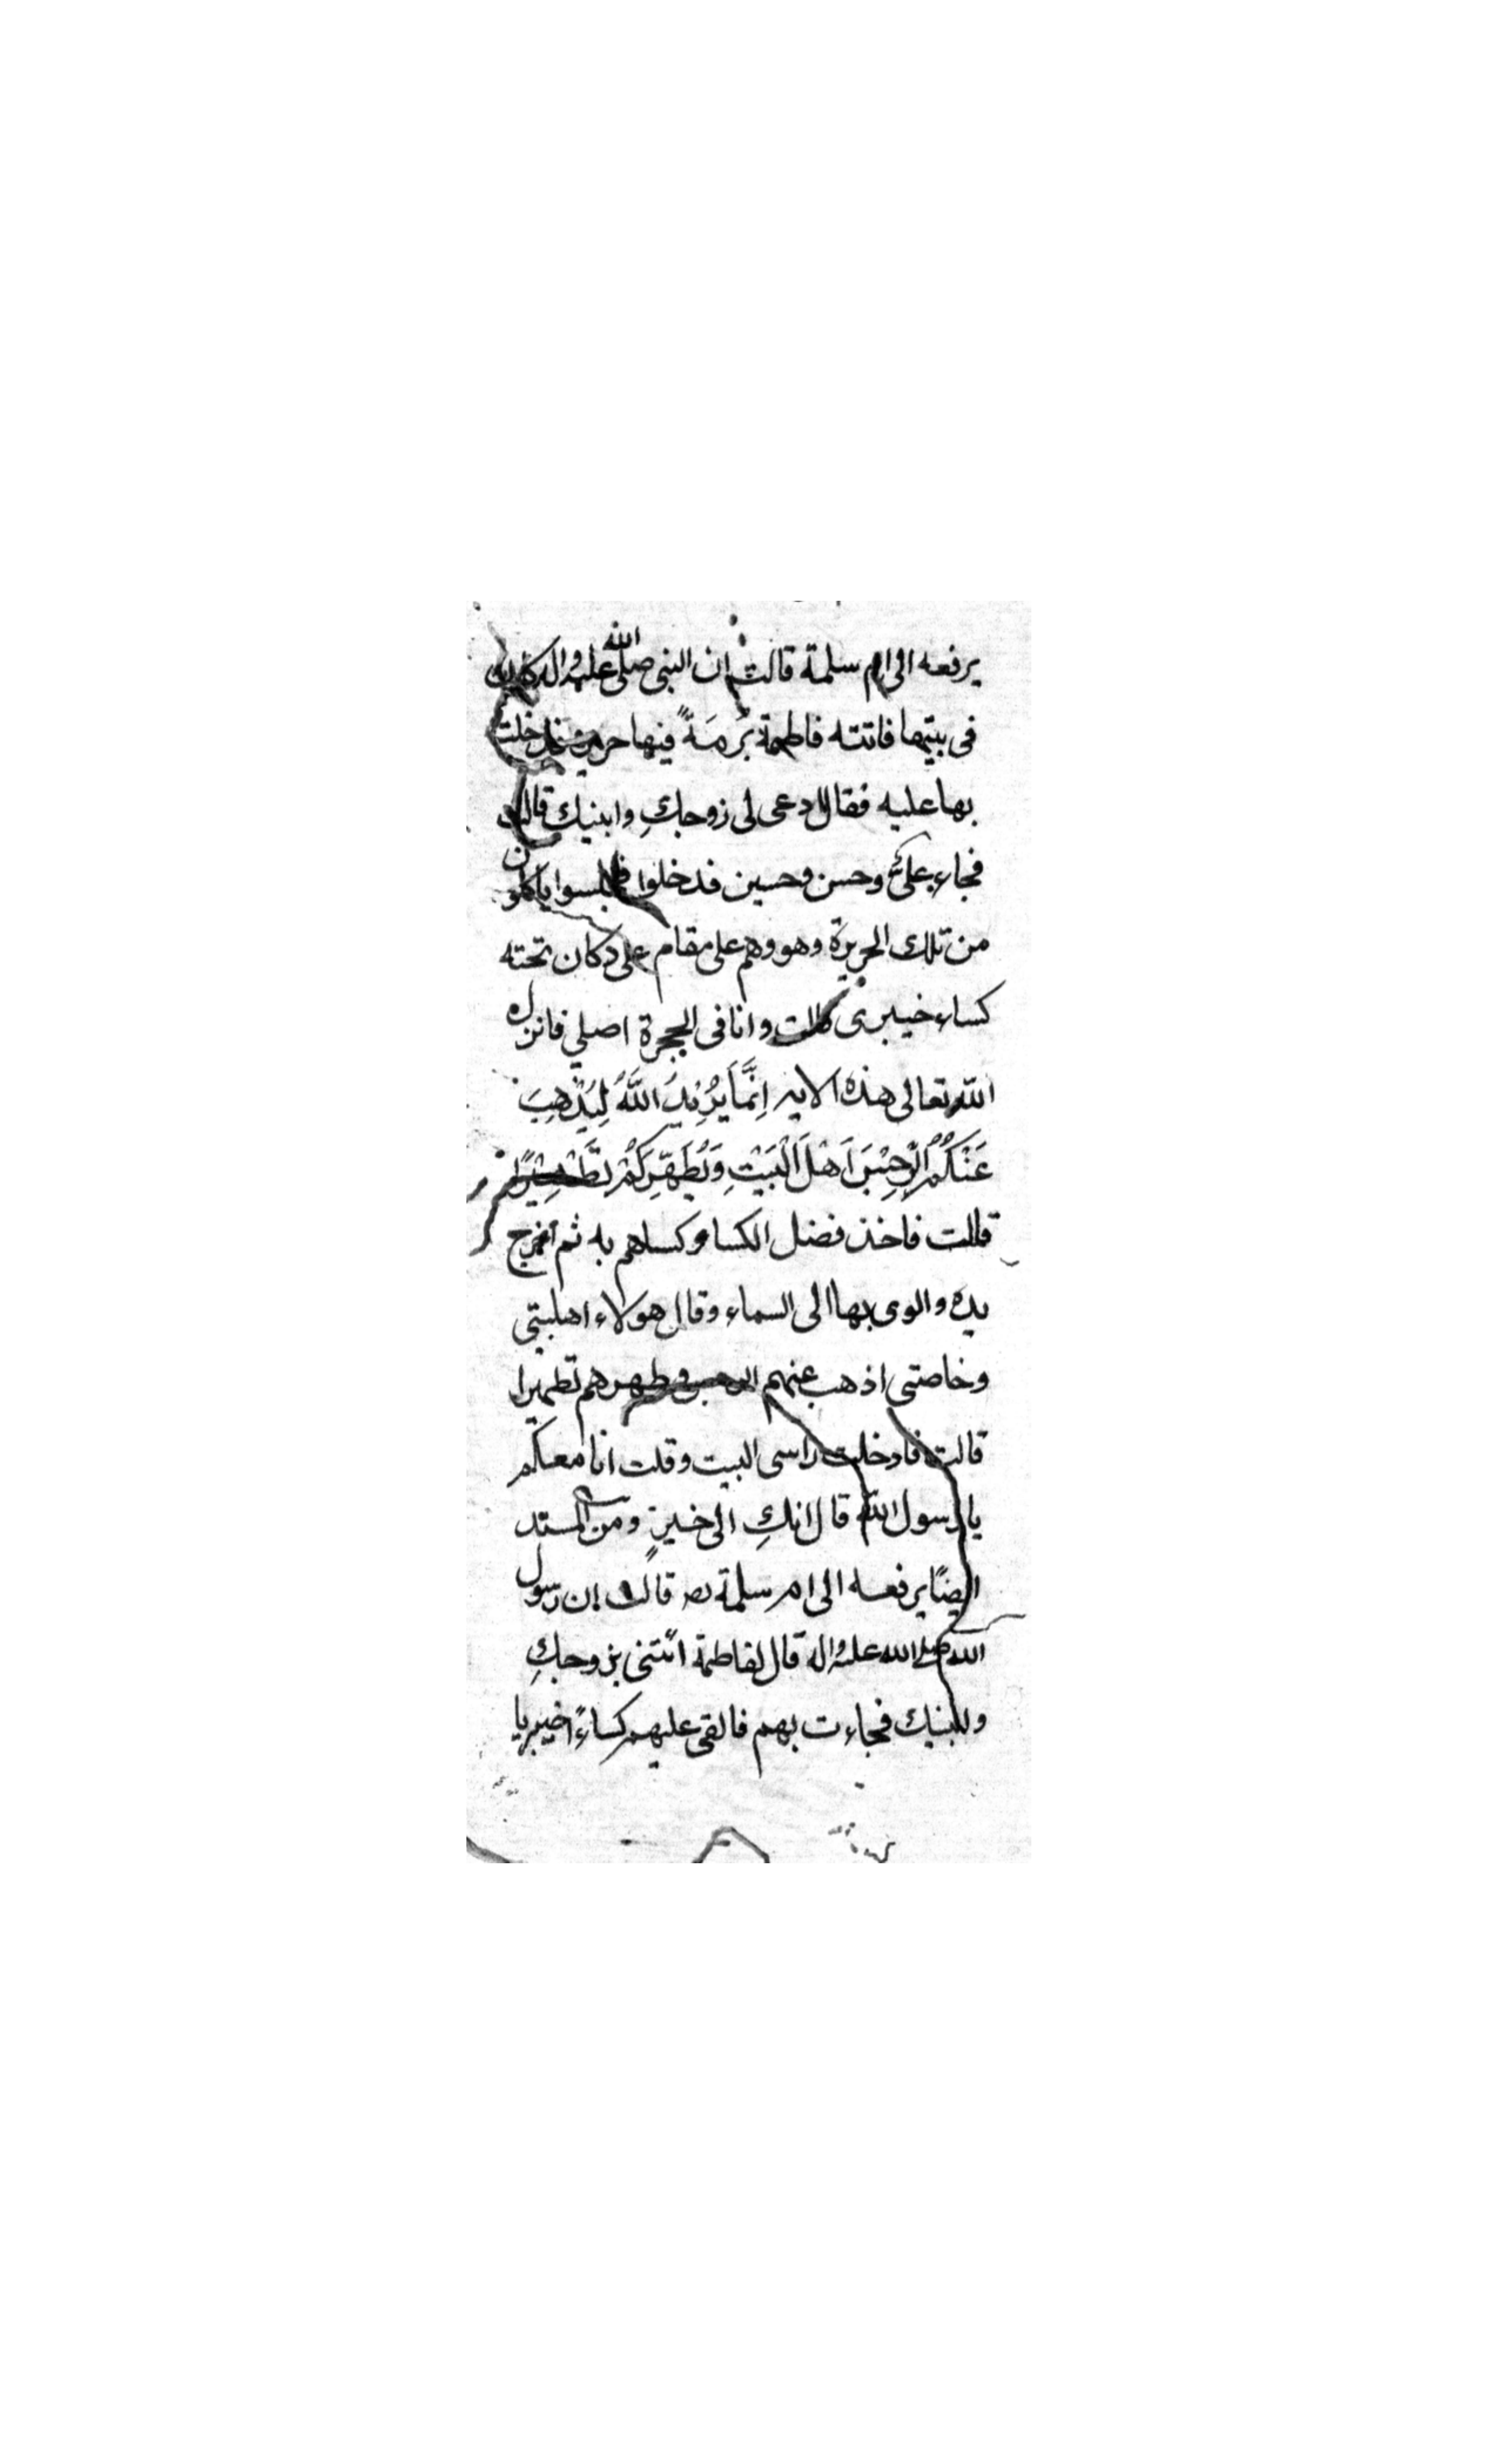 يرفعه الى ام سلمة قالت ان النبى صلى الله عليه واله كان
فى بيتها فاتته فاطمة بُرمَةً فيها حريرة فدخلت
بها عليه فقال ادعى لى زوجكِ وابنيك قالت
فجاء على وحسن وحسين فدخلوا فجلسوا ياكلون
من تلك الحريرة وهو وهم على مقام على دكان تحته
كساء خيبرى قالت وانا فى الحجرة اصلي فانزل
الله تعالى هذه الايه اِنَّمَا يُرِيْدُ اللَّهُ لِيُذْهِبَ
عَنْكُمُ الرِّجْسَ اَهْلَ الْبَيْتِ وَيُطَهِّرَكُمْ تَطْهِيْرًا
قالت فاخذ فضل الكسا وكساهم به ثم اخرج
يده والوى بها الى السماء وقال هولاء اهلبيتى
وخاصتى اذهب عنهم الرجس وطهرهم تطهيرا
قالت فادخلت راسى البيت وقلت انا معكم
يا رسول الله قال انكِ الى خير ومن المسند
ايضًا يرفعه الى ام سلمة قالت ان رسول
الله صلى الله عليه واله قال لفاطمة ائتنى بزوجكِ
وابنيك فجاءت بهم فالقى عليهم كساءً خيبريا